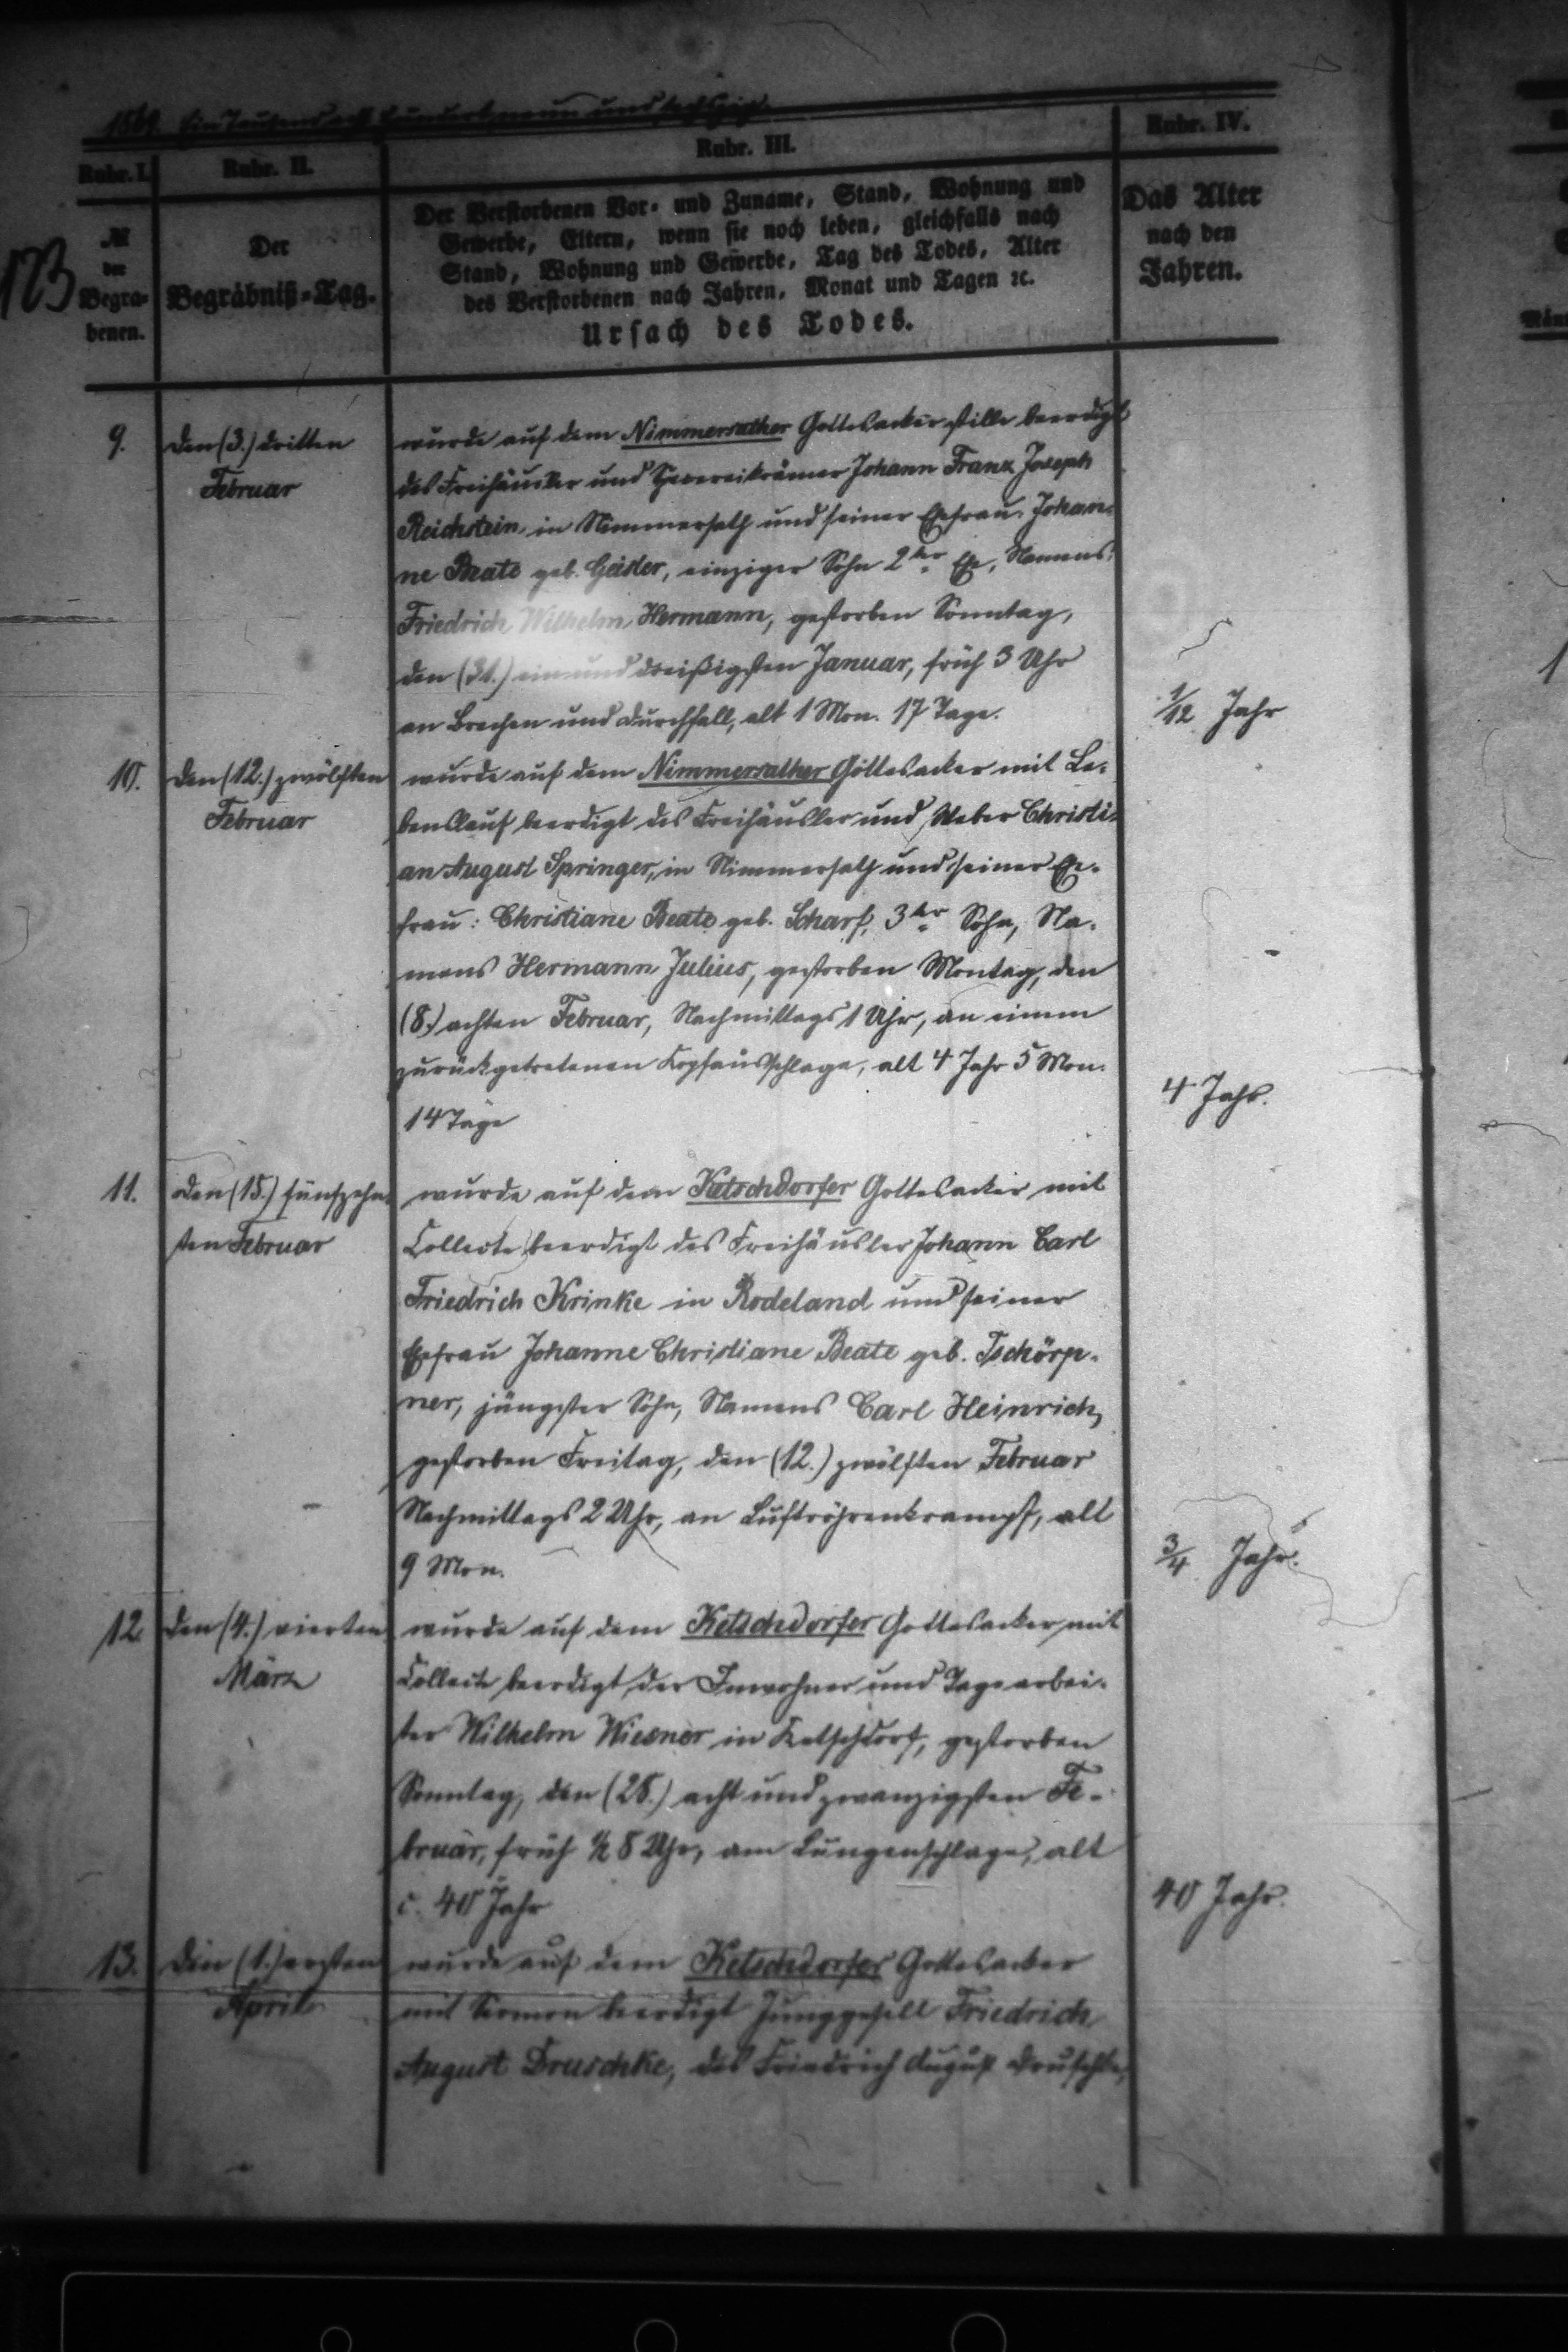 1869. Ein Tausend acht hundert neun und sechszig.
Rubr. I. Rubr. II. Rubr. III. Rubr. IV.
123
№
der
Begra-
benen.
Der
Begräbniß-Tag.
Der Verstorbenen Vor- und Zuname, Stand, Wohnung und
Gewerbe, Eltern, wenn sie noch leben, gleichfalls nach
Stand, Wohnung und Gewerbe, Tag des Todes, Alter
des Verstorbenen nach Jahren, Monat und Tagen ꝛc.
Ursach des Todes.
Das Alter
nach den
Jahren.
9. den (3.) dritten
Februar
wurde auf dem Nimmersather Gottesacker stille beerdigt
des Freihäusler und Spezereikrämer Johann Franz Joseph
Reichstein, in Nimmersath und seiner Ehefrau: Johan-
ne Beate geb. Geisler, einziger Sohn 2ter Ehe, Namens:
Friedrich Wilhelm Hermann, gestorben Sonntag,
den (31.) einund dreißigsten Januar, früh 3 Uhr
an Brechen und Durchfall, alt 1 Mon. 17 Tage.
1/12 Jahr
10. den (12.) zwölften
Februar
wurde auf dem Nimmersather Gottesacker mit Le-
benslauf beerdigt des Freihäusler und Weber Christi-
an August Springer, in Nimmersath und seiner Ehe-
frau: Christiane Beate geb. Scharf, 3ter Sohn, Na-
mens Hermann Julius, gestorben Montag, den
(8.) achten Februar, Nachmittags 1 Uhr, an einem
zurückgetretenen Kopfausschlage, alt 4 Jahr 5 Mon.
14 Tage
4 Jahr.
11. den (15.) fünfzehn-
ten Februar
wurde auf dem Ketschdorfer Gottesacker mit
Collecte beerdigt des Freihäusler Johann Carl
Friedrich Krinke in Rodeland und seiner
Ehefrau Johanne Christiane Beate geb. Tschörp-
ner, jüngster Sohn, Namens Carl Heinrich,
gestorben Freitag, den (12.) zwölften Februar
Nachmittags 2 Uhr, an Luftröhrenkrampf, alt
9 Mon.
3/4 Jahr.
12. den (4.) vierten
März
wurde auf dem Ketschdorfer Gottesacker mit
Collecte beerdigt der Inwohner und Tagearbei-
ter Wilhelm Wiesner in Ketschdorf, gestorben
Sonntag, den (28.) acht und zwanzigsten Fe-
bruar, früh 1/2 8 Uhr, am Lungenschlage, alt
c. 40 Jahr
40 Jahr.
13. den (1.) ersten
April
wurde auf dem Ketschdorfer Gottesacker
mit Sermon beerdigt Junggesell Friedrich
August Druschke, des Friedrich August Druschke,